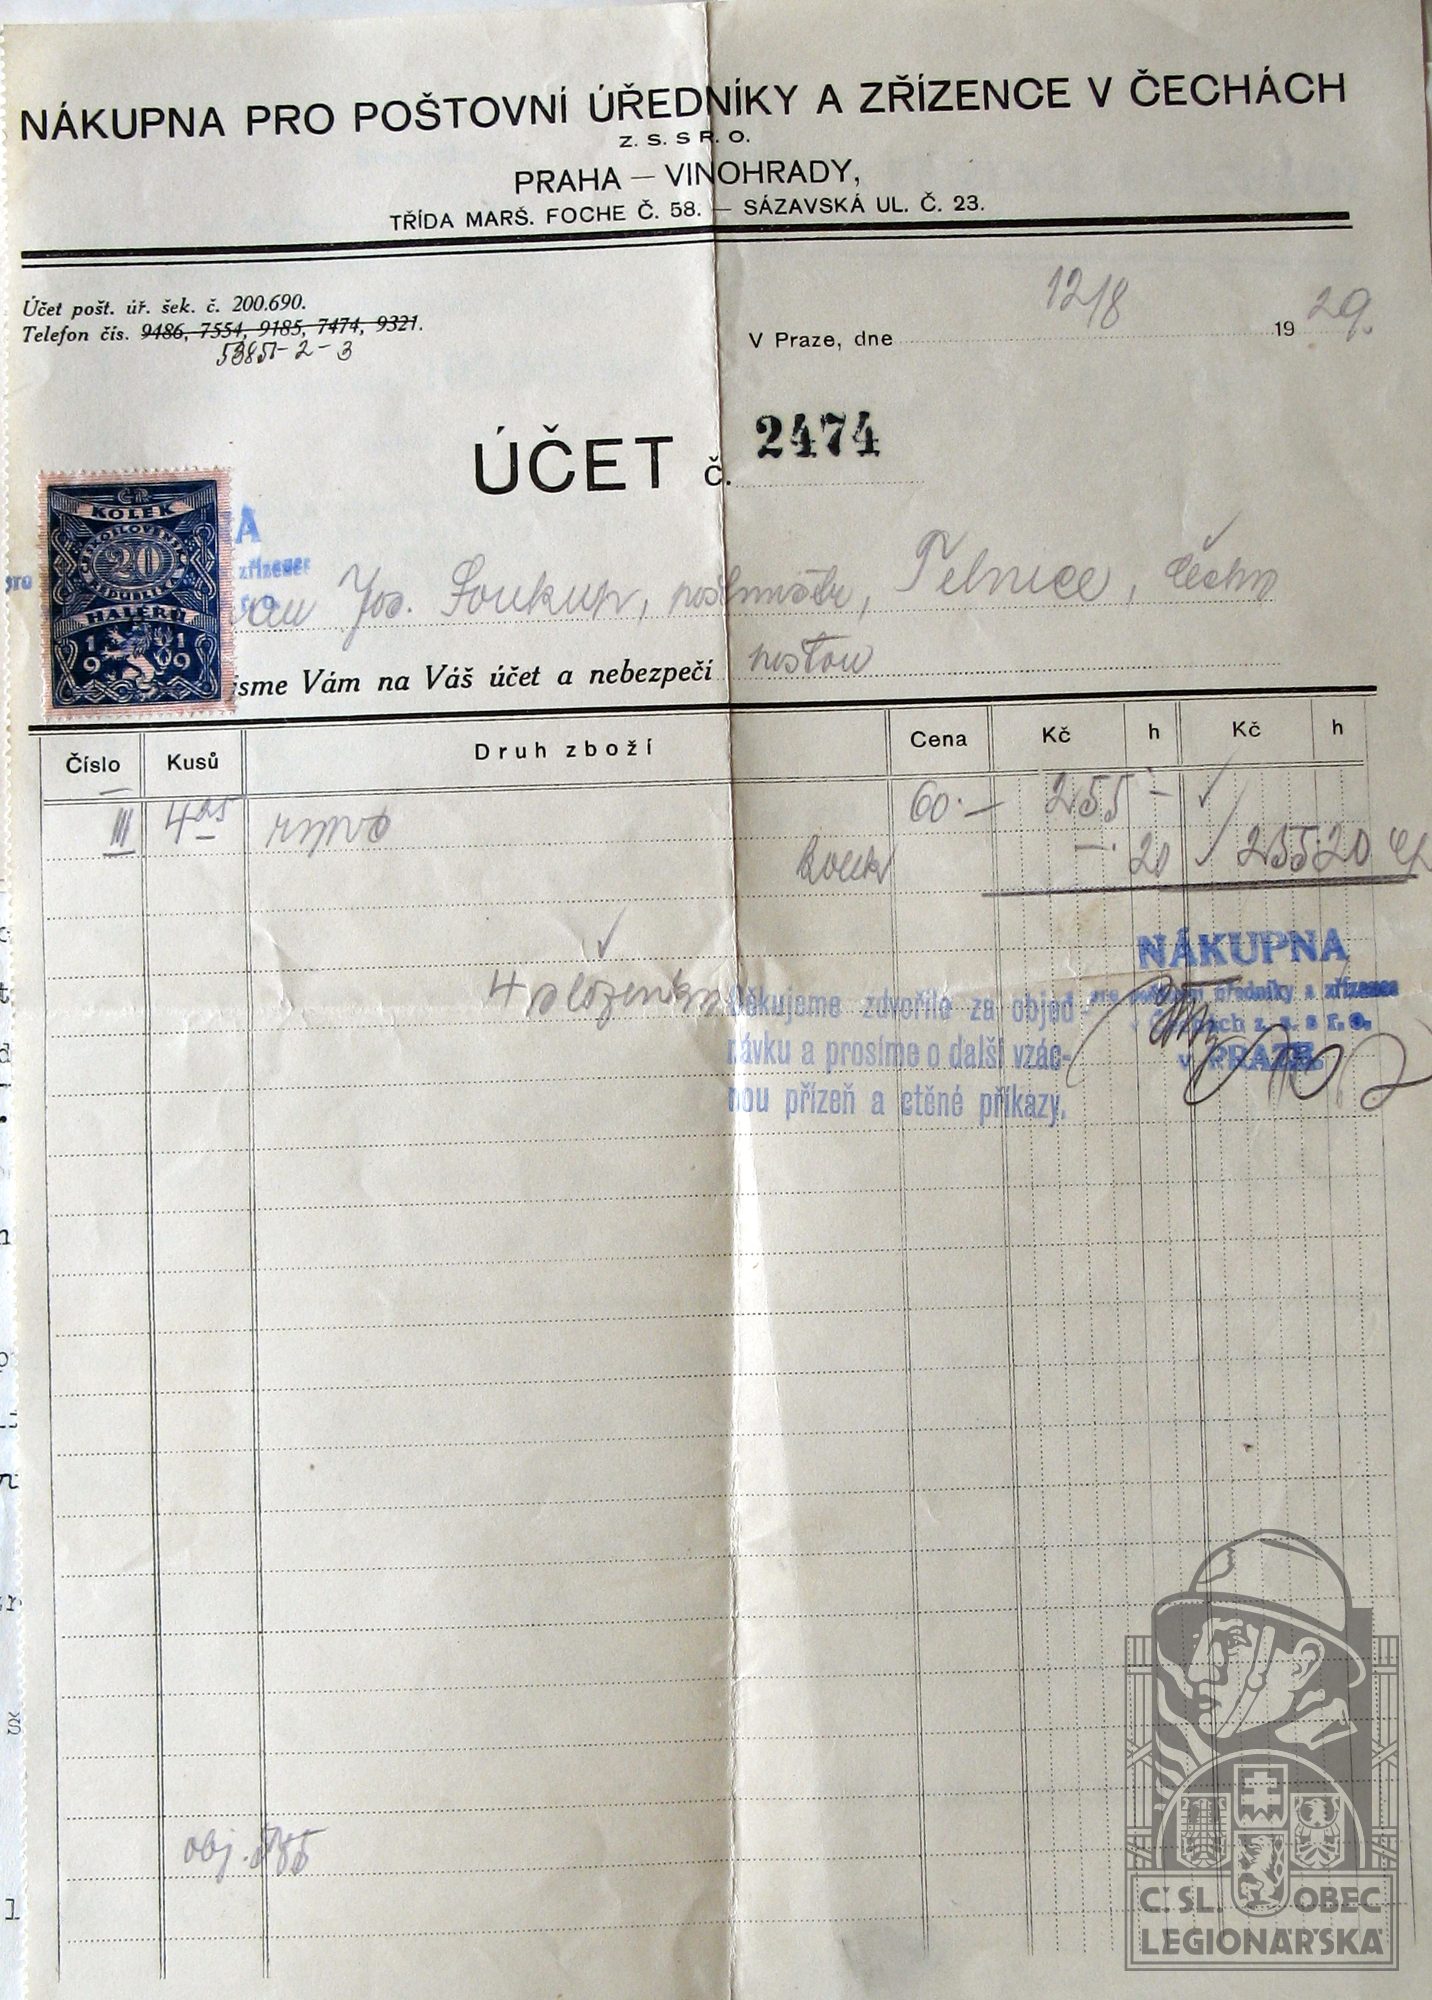 NÁKUPNA PRO POŠTOVNÍ ÚŘEDNÍKY A ZŘÍZENCE V ČECHÁCH
Z. S. S R. O.
PRAHA — VINOHRADY,
TŘÍDA MARŠ. FOCHE Č. 58. — SÁZAVSKÁ UL. Č. 23.
Účet pošt. úř. šek. č. 200.690.
Telefon čís. 9486, 7554, 9185, 7474, 9321.
53851-2-3
V Praze, dne 12/8 1929.
ÚČET č. 2474
ČR
KOLEK
ČESKOSLOVENSKÁ
20
REPUBLIKA
HALÉŘŮ
1919
zřízence
Jos. Soukup, poštmistr, Telnice, Čechy
jsme Vám na Váš účet a nebezpečí poštou
Číslo Kusů Druh zboží Cena Kč h Kč h
III 4.25 60.— 255 —
kolek —. 20 255 20
4 složenky
NÁKUPNA
pro poštovní úředníky a zřízence
v Čechách z. s. s r. o.
v PRAZE
Děkujeme zdvořile za objed-
návku a prosíme o další vzác-
nou přízeň a ctěné příkazy.
obj. 585
Č. SL. OBEC
LEGIONÁŘSKÁ